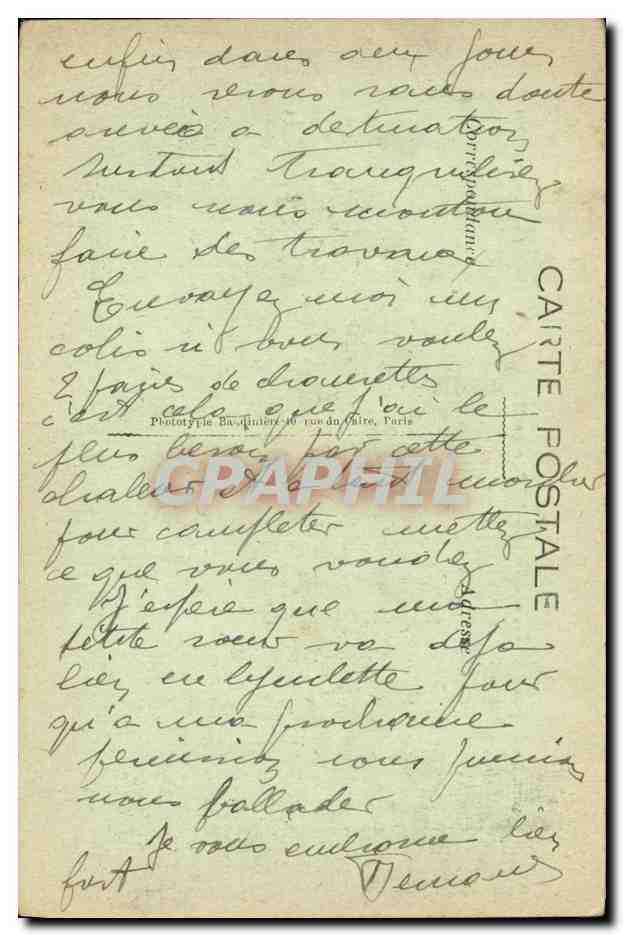 enfin dans deux jours
nous serons sans doute
arrivés a destination
surtout tranquilisez
vous nous
faire des travaux
Envoyez moi un
colis si vous voulez
2 paires de chaussettes
c'est cela que j'ai le
Phototypie Baudinière 10 rue du Caire, Paris
plus besoin par cette
chaleur et il faut marcher
pour completer mettez
ce que vous voudrez
J'espère que ma
petite soeur va deja
bien en byciclette pour
qu'a ma prochaine
permission nous puissions
nous ballader
Je vous embrasse bien
fort
CARTE POSTALE
Correspondance
Adresse
CPAPHIL